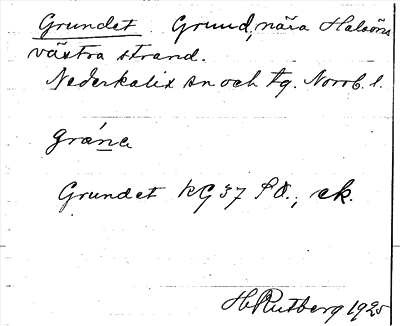 Grundet Grund, nära Halsöns
västra strand.
Nederkalix sn och tg. Norrb. l.
gråna
Grundet KG 37 SO.; ek.
HRutberg 1925